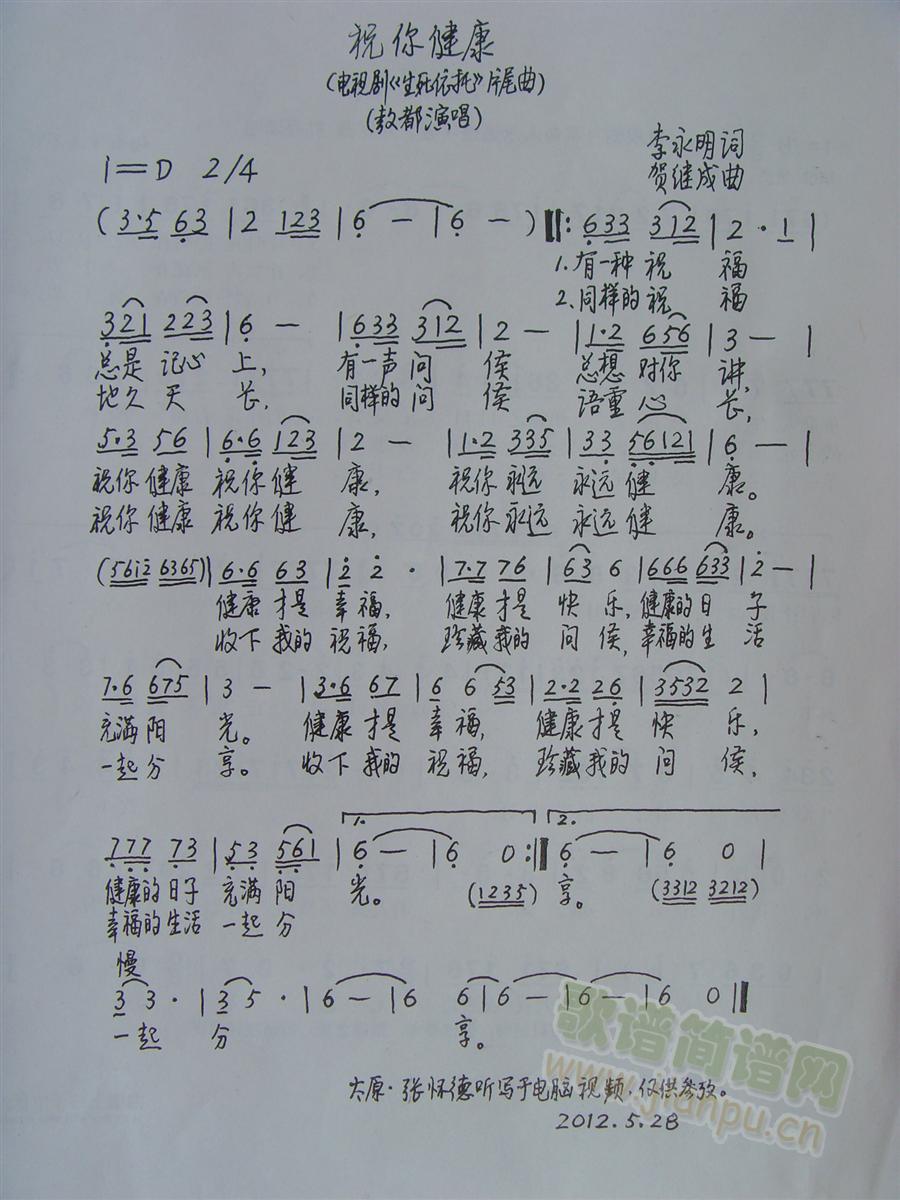 祝你健康
(电视剧《生死依托》片尾曲)
(敖都演唱)
1=D 2/4
李永明词
贺继成曲
(3·5 63 | 2 123 | 6 — | 6 — ) ‖: 633 312 | 2 · 1 |
1. 有一种 祝 福
2. 同样的 祝 福
321 223 | 6 — | 633 312 | 2 — | 1·2 656 | 3 — |
总是 记心 上, 有一声 问 侯 总想 对你 讲,
地久 天 长, 同样的 问 侯 语重 心 长,
5·3 56 | 6·6 123 | 2 — | 1·2 335 | 33 56121 | 6 — |
祝你 健康 祝你 健 康, 祝你 永远 永远 健 康。
祝你 健康 祝你 健 康, 祝你 永远 永远 健 康。
(5612 6365) | 6·6 63 | 2 2 · | 7·7 76 | 63 6 | 666 633 | 2 — |
健康 才是 幸 福, 健康 才是 快 乐, 健康的 日 子
收下 我的 祝 福, 珍藏 我的 问 侯, 幸福的 生 活
7·6 675 | 3 — | 3·6 67 | 6 6 53 | 2·2 26 | 3532 2 |
充满 阳 光。 健康 才是 幸 福, 健康 才是 快 乐,
一起 分 享。 收下 我的 祝 福, 珍藏 我的 问 侯,
1. 2.
777 73 | 53 561 | 6 — | 6 0 :‖ 6 — | 6 0 |
健康的 日子 充满 阳 光。 (1235) 享。 (3312 3212)
幸福的 生活 一起 分
慢
3 3 · | 3 5 · | 6 — | 6 6 | 6 — | 6 — | 6 0 ‖
一起 分 享。
太原·张怀德听写于电脑视频,仅供参考。
2012.5.28
歌谱简谱网
www.jianpu.cn